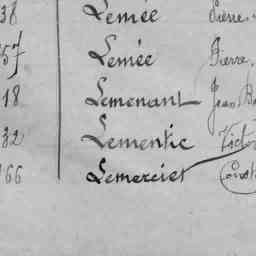 38 Lemée Pierre
57 Lemée Pierre,
18 Lemenant Jean
32 Lementic Victo
166 Lemercier Const